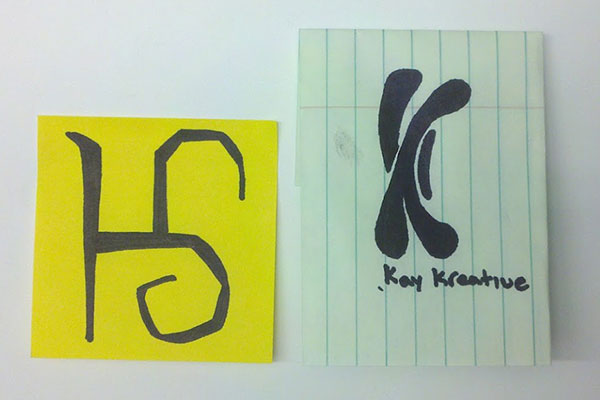 HS
K
Kay Kreative